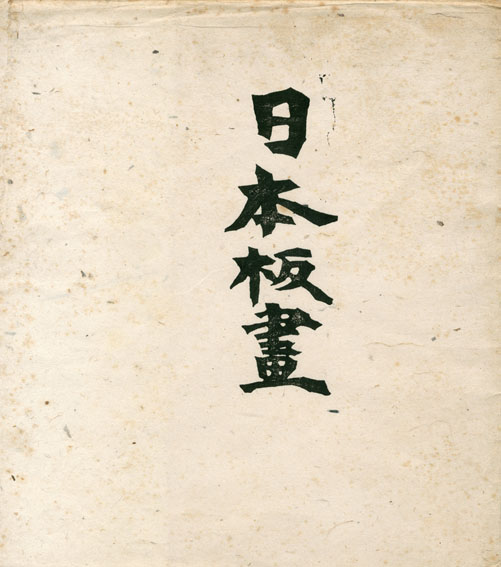 日本板畫